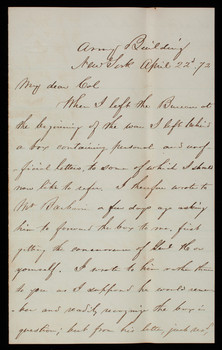 Army Building
New York April 22d 72
My dear Col.
When I left the Bureau at
the beginning of the war I left behind
a box containing personal and
official letters, to some of which I should
now like to refer. I therefore wrote to
Mr a few days ago asking
him to forward the box to me, first
getting the concurrence of or
yourself. I wrote to him rather than
to you as I supposed he would remem-
ber and readily recognize the box in
question; but from his letter, just